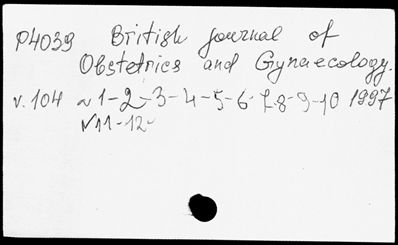 P4039 British journal of
Obstetrics and Gynaecology.
v. 104 N1-2-3-4-5-6-7-8-9-10 1997
N11-12-